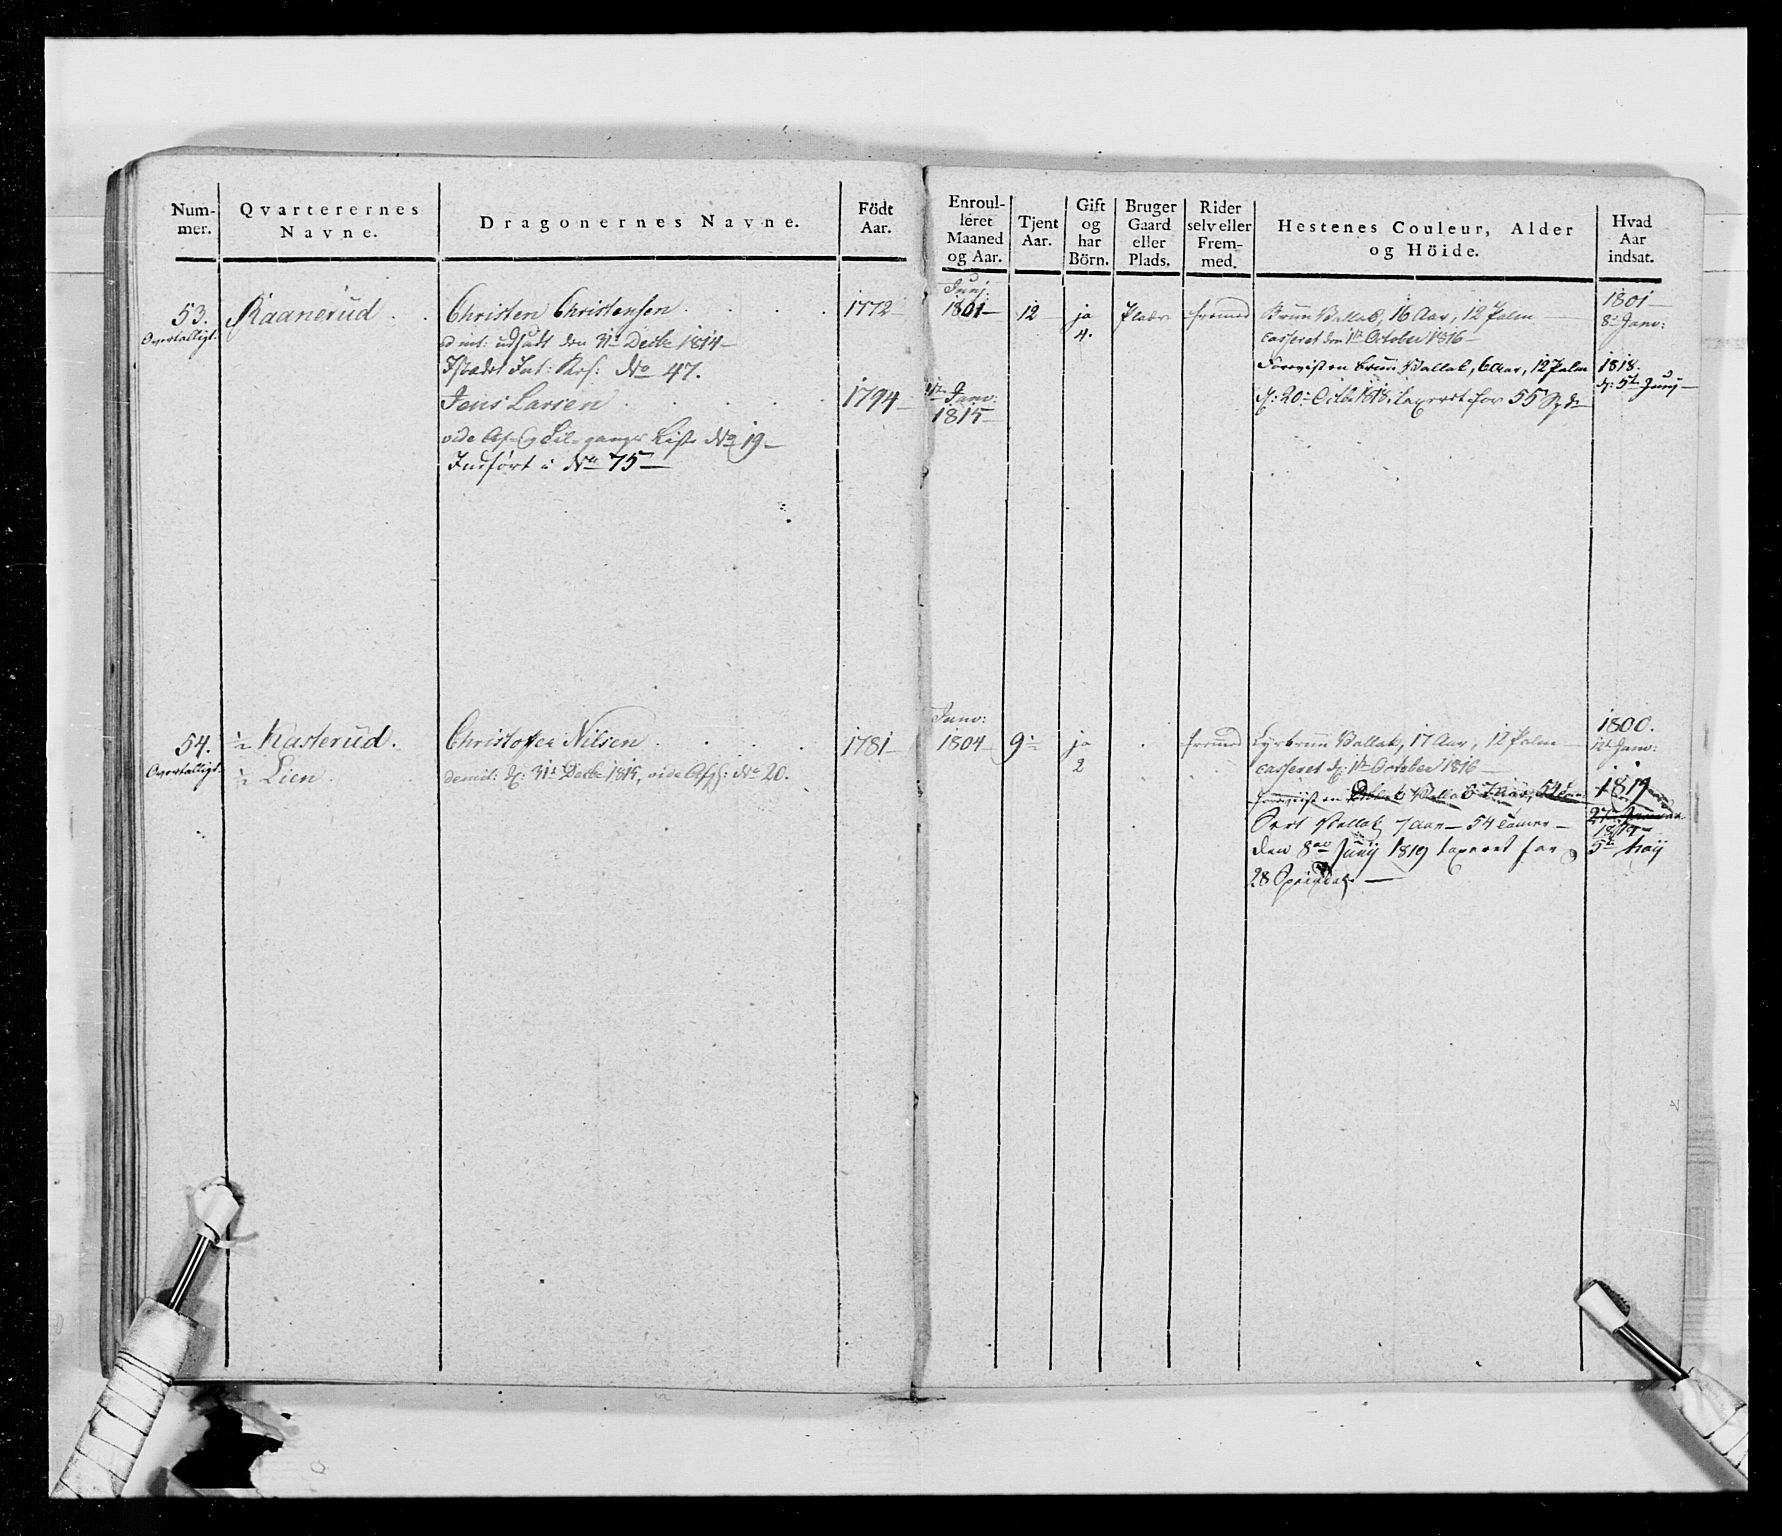 Num-
mer.
Qvarterernes
Navne.
Dragonernes Navne.
Födt
Aar.
Enroul-
léret
Maaned
og Aar.
Tjent
Aar.
Gift
og
har
Börn.
Bruger
Gaard
eller
Plads.
Rider
selv eller
Frem-
med.
Hestenes Couleur, Alder
og Höide.
Hvad
Aar
indsat.
53.
Overtalligt.
Raanerud
Christen Christensen
udsadt den 31te Decbr 1814
No 47.
Jens Larsen
vide Af- og Til- gangs Liste No 19
Indført i No 75
1772
1794
Junj.
1801
Janv:
1815
12
ja
4.
Plads
fremmed
Bruun Vallak, 16 Aar, 12 Palm
casseret den 1te October 1816
Foreviist en bruun Vallak, 6 Aar, 12 Palm
d: 20de Octbr 1818, taxeret for 55 Spdr
1801
8de Janv:
1818.
d: 5te Junj
54.
Overtalligt.
½ Kasterud.
½ Lien
Christoffer Nilsen
demit: d: 31te Decbr 1815, vide Afg: No 20.
1781
Janv:
1804
9
ja
2
fremmed
Lysbruun Vallak, 17 Aar, 12 Palm
casseret d: 1te October 1816
foreviist en Vallak 7 Aar, 54
Sort Vallak 7 Aar 54 Tomer
den 8de Junij 1819 taxeret for
28 Speciedal.
1800.
12te Janv:
1819
1819
5te Maij